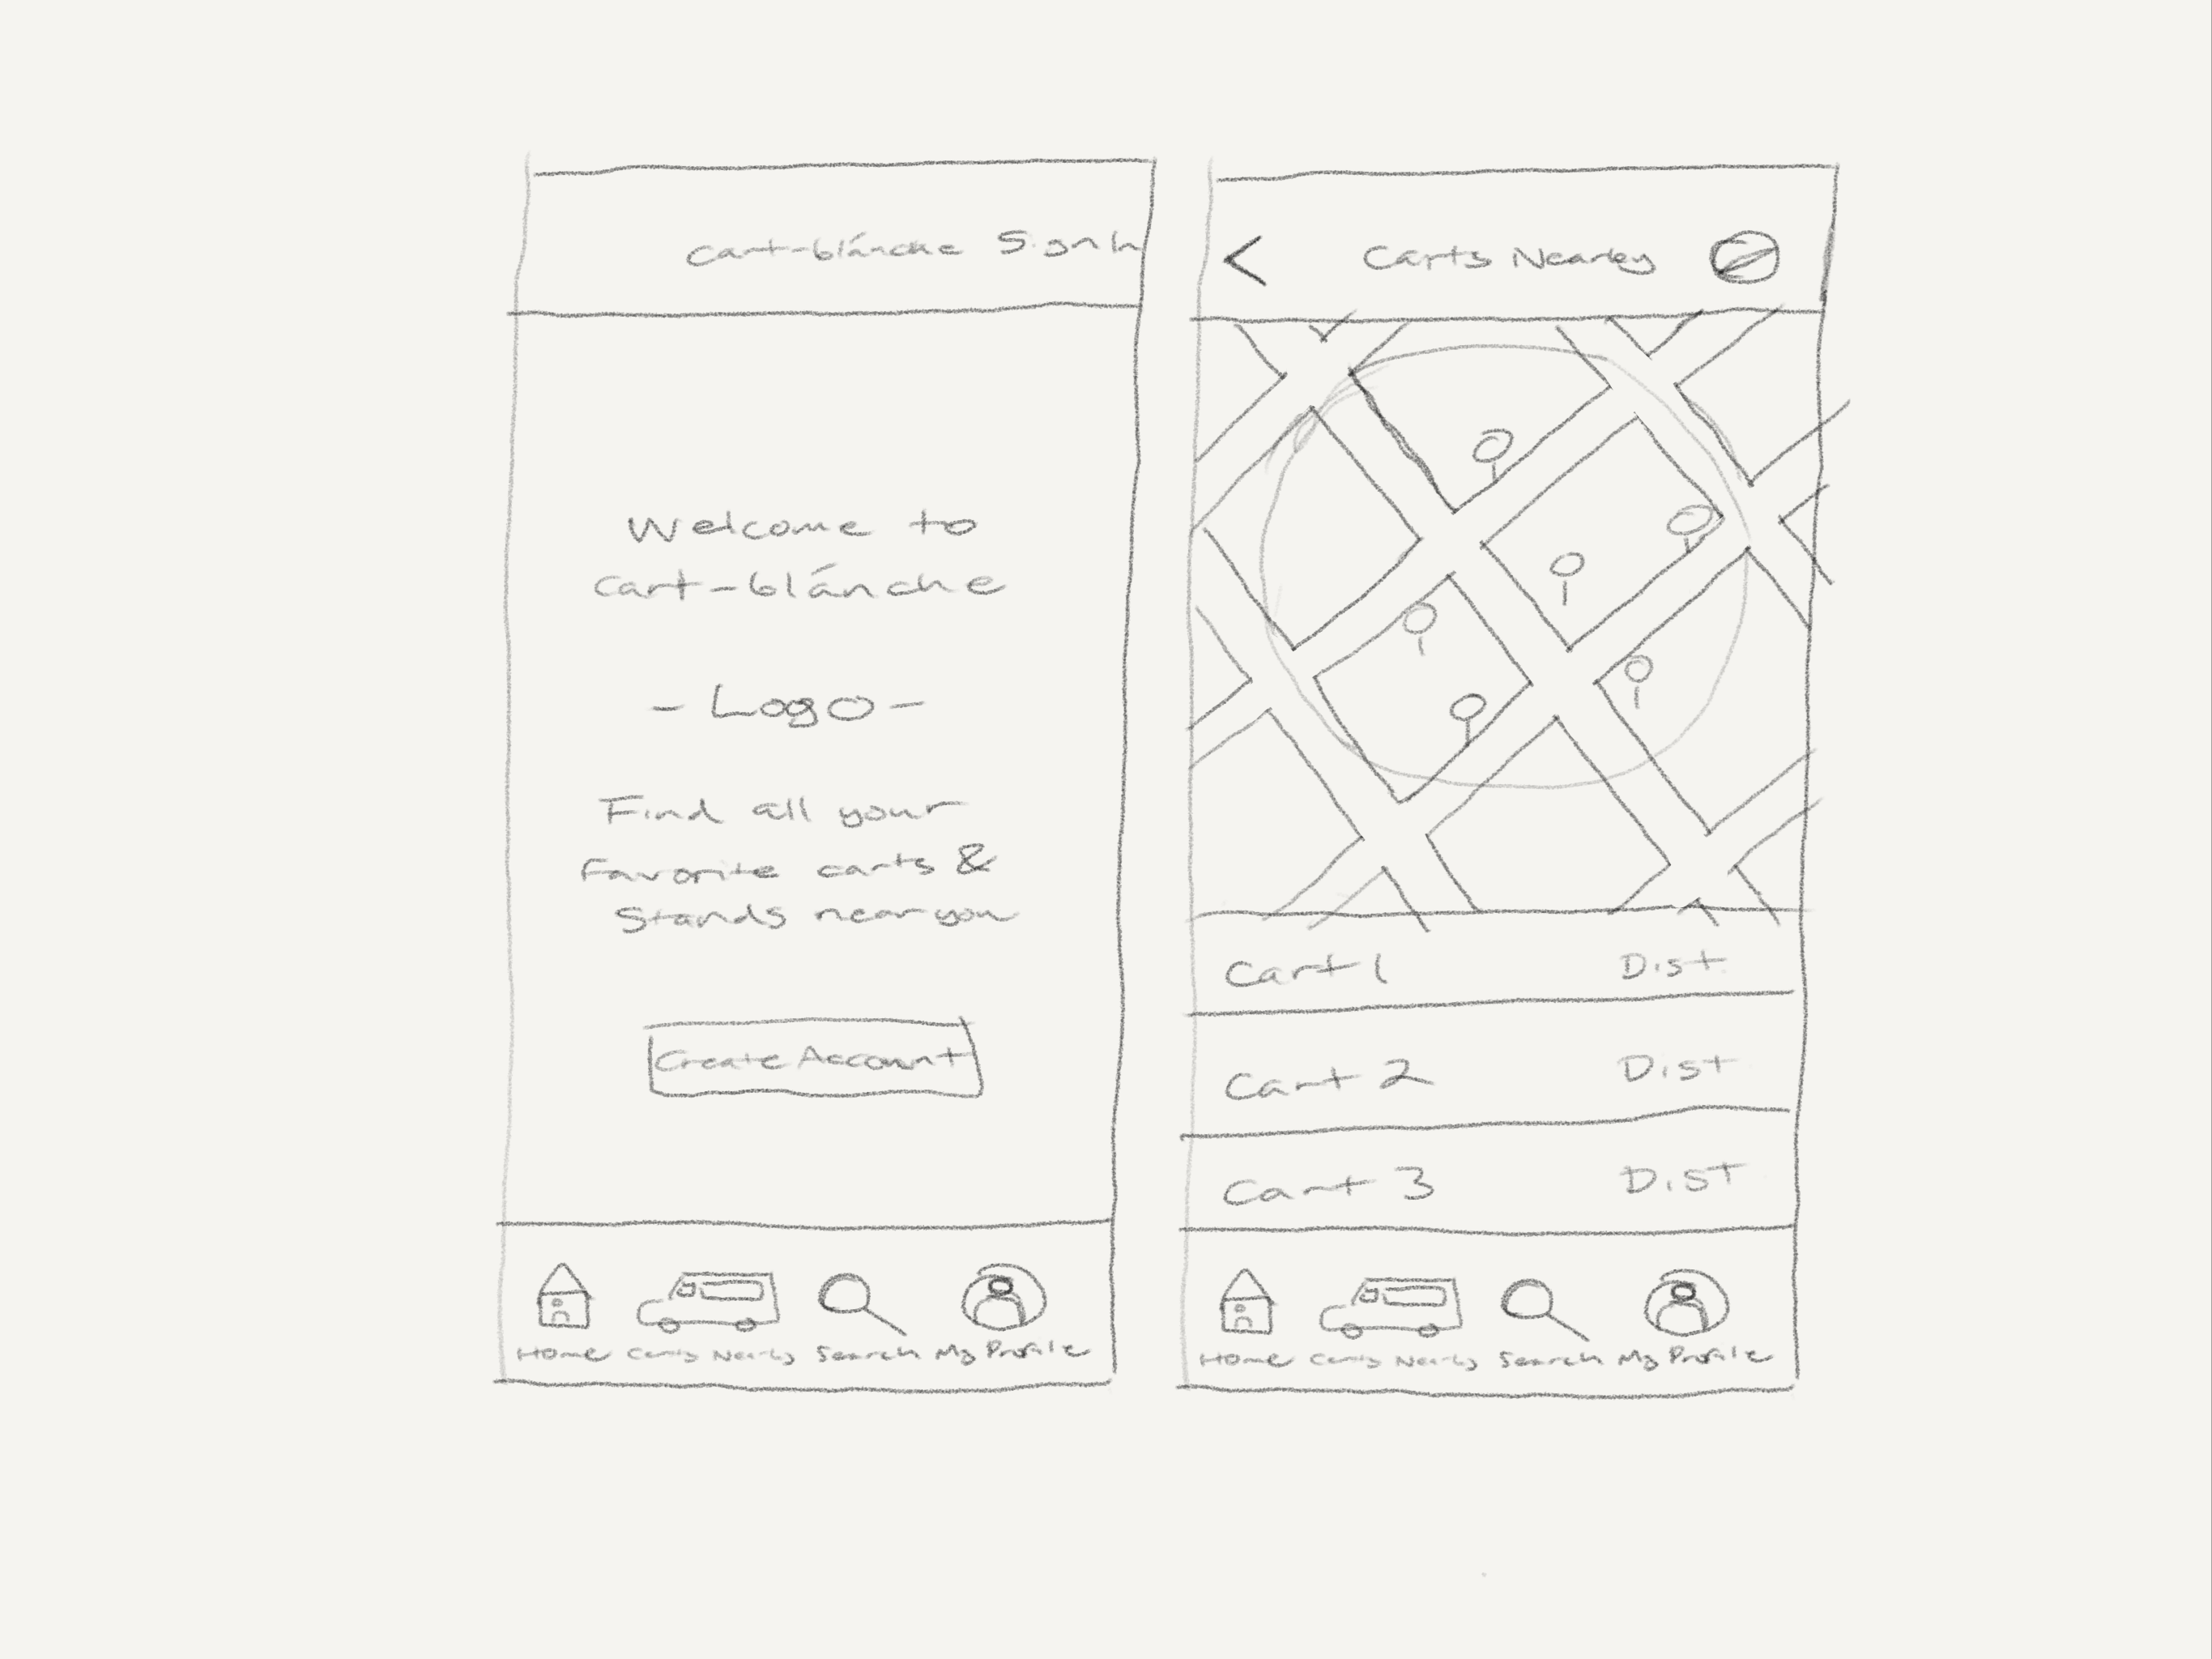 Cart-blánche Sign In
Welcome to
Cart-blánche
- Logo -
Find all your
Favorite carts &
Stands near you
Create Account
Home Carts Nearby Search My Profile
Carts Nearby
Cart 1 Dist.
Cart 2 Dist
Cart 3 Dist
Home Carts Nearby Search My Profile